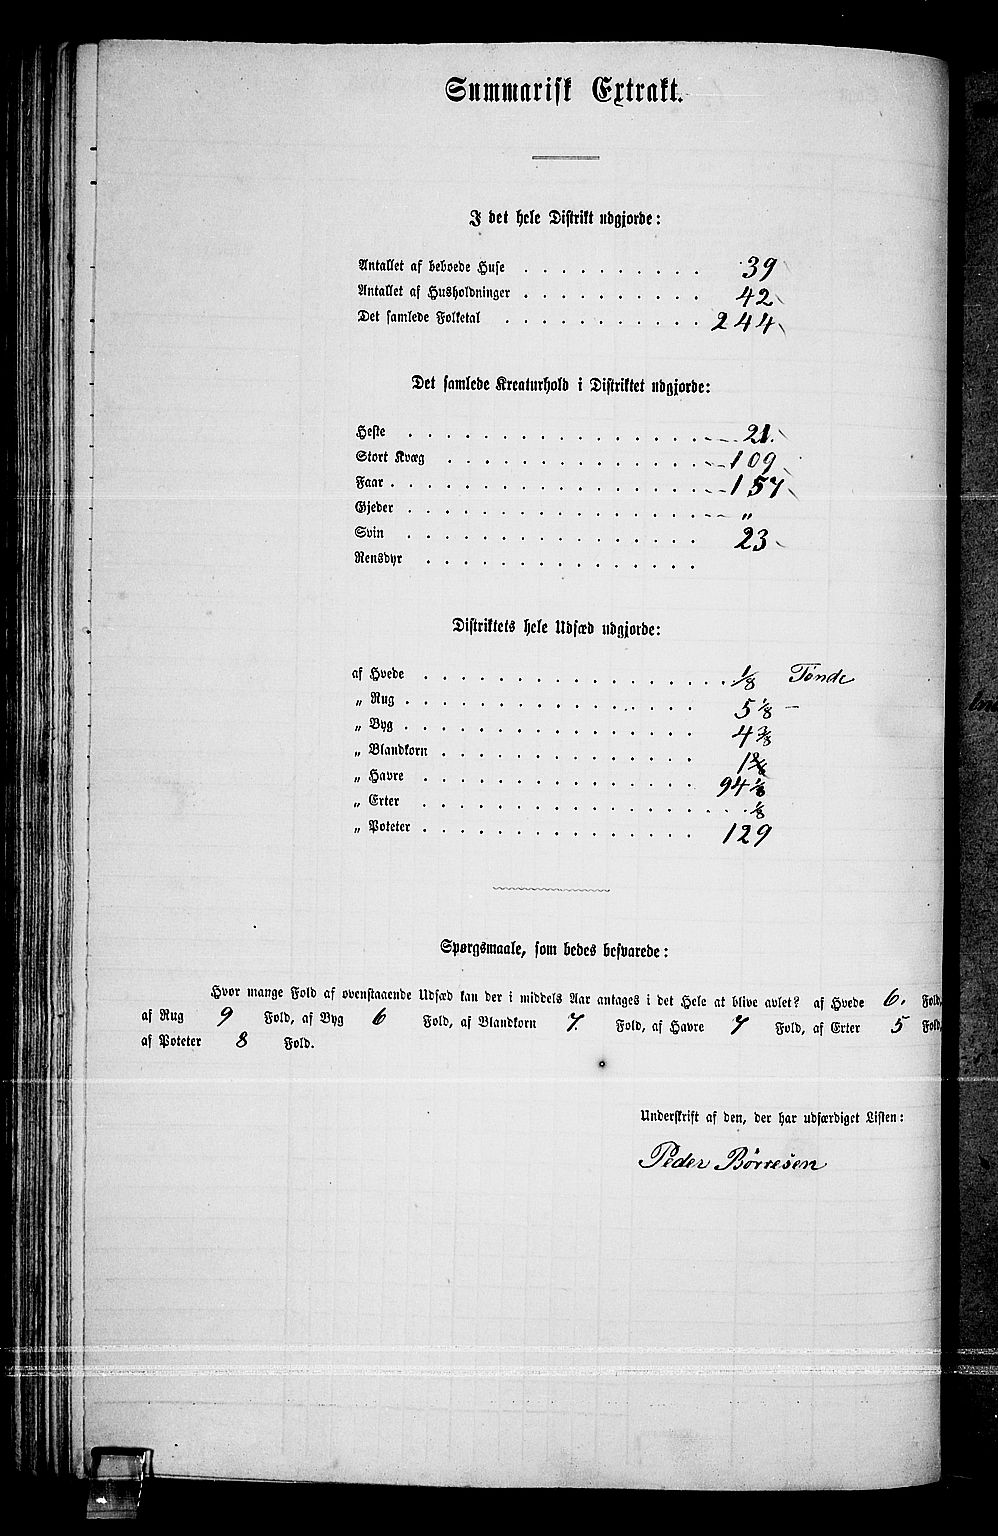 Summarisk Extrakt.
I det hele Distrikt udgjorde:
Antallet af beboede Huse . . . . . . . . . . 39
Antallet af Husholdninger . . . . . . . . . . 42
Det samlede Folketal . . . . . . . . . . . 244
Det samlede Kreaturhold i Distriktet udgjorde:
Heste . . . . . . . . . . . . . . . . 21.
Stort Kvæg . . . . . . . . . . . . . . 109
Faar . . . . . . . . . . . . . . . . . 157
Gjeder . . . . . . . . . . . . . . . . „
Svin . . . . . . . . . . . . . . . . 23
Rensdyr . . . . . . . . . . . . . . .
Distriktets hele Udsæd udgjorde:
af Hvede . . . . . . . . . . . . . . . . 1/8 Tønde
„ Rug . . . . . . . . . . . . . . . . 5 1/8 —
„ Byg . . . . . . . . . . . . . . . . 4 3/8
„ Blandkorn . . . . . . . . . . . . . . 1
„ Havre . . . . . . . . . . . . . . . 94 1/8
„ Erter . . . . . . . . . . . . . . . . 1/8
„ Poteter . . . . . . . . . . . . . . . 129
Spørgsmaale, som bedes besvarede:
Hvor mange Fold af ovenstaaende Udsæd kan der i middels Aar antages i det Hele at blive avlet? af Hvede 6. Fold,
af Rug 9 Fold, af Byg 6 Fold, af Blandkorn 7. Fold, af Havre 7 Fold, af Erter 5 Fold,
af Poteter 8 Fold.
Underskrift af den, der har udfærdiget Listen:
Peder Børresen